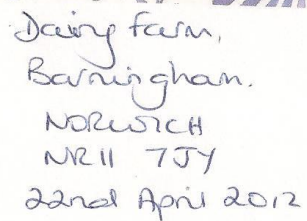 Dairy Farm,
Barningham.
NORWICH
NR11 7JY
22nd April 2012